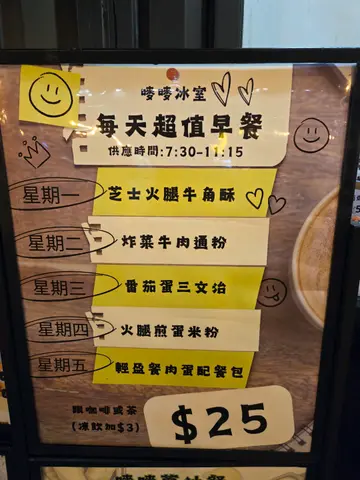 嘜嘜冰室
每天超值早餐
供應時間:7:30-11:15
星期一 芝士火腿牛角酥
星期二 炸菜牛肉通粉
星期三 番茄蛋三文治
星期四 火腿煎蛋米粉
星期五 輕盈餐肉蛋配餐包
跟咖啡或茶
(凍飲加$3)
$25